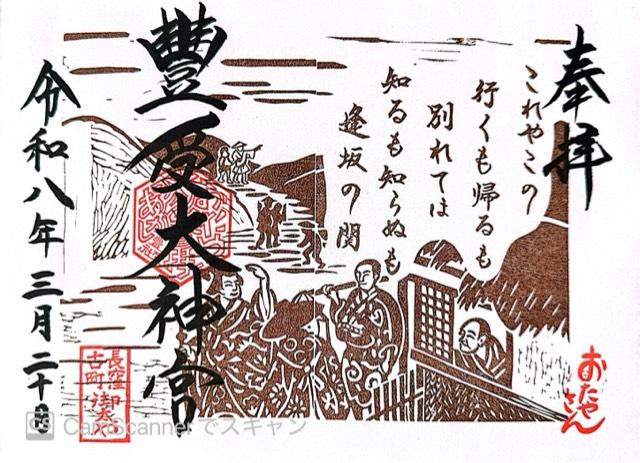 奉拝
これやこの
行くも帰るも
別れては
知るも知らぬも
逢坂の関
豐受大神宮
令和八年三月二十
おたやさん
長窪
古町
CS CamScanner でスキャン